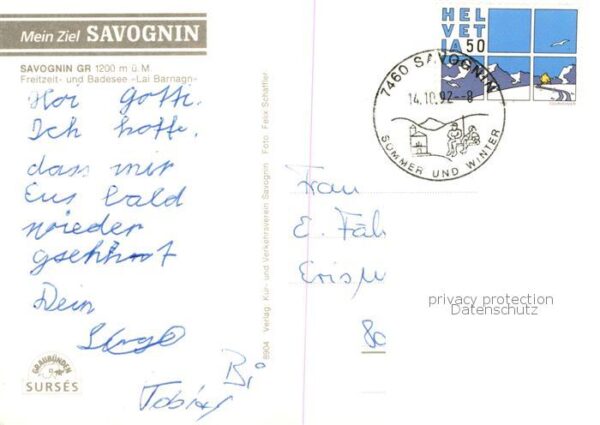 Mein Ziel SAVOGNIN
SAVOGNIN GR 1200 m ü. M.
Freizeit- und Badesee «Lai Barnagn»
Hoi Gotti.
Ich hoffe,
dass mir
Eus bald
wieder
gsehnt
Dein
Tobias
GRAUBÜNDEN
SURSÉS
8904 Verlag Kur- und Verkehrsverein Savognin Foto Felix Schaffer
HELVETIA 50
7460 SAVOGNIN
14.10.92--8
SOMMER UND WINTER
Frau
E. Fäh
Eris
80
privacy protection
Datenschutz